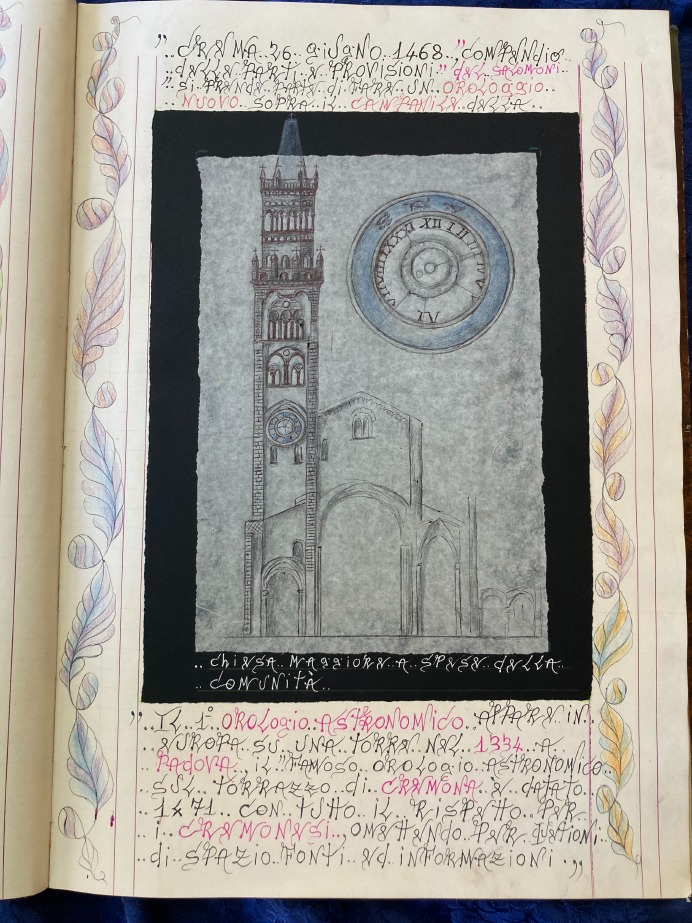 ".. CREMA 26 giugno 1468 "COMPENDIO
.. DELLE PARTI E PROVISIONI" DEL SALOMONI..
" Si PRENDE PARTE di FARE UN OROLOGGIO..
.. NUOVO.. SOPRA IL CAMPANILE DELLA..
XII I II III IV V VI VII VIII IX X XI
.. ChiESA MAGGIORE A SPESE DELLA..
.. COMUNITÀ..
".. IL 1° OROLOgio ASTRONOMICO APPARE iN..
.. EUROPA SU UNA TORRE NEL 1334 A..
PADOVA, iL "FAMOSO OROLOgio ASTRONOMICO..
SUL TORRAZZO di CREMONA È DATATO
1471 CON TUTTO iL RISPETTO PER
i.. CREMONESI.. OMETTENDO PER QUESTIONI..
di.. SPAZIO FONTI ED iNFORMAZIONI.. "